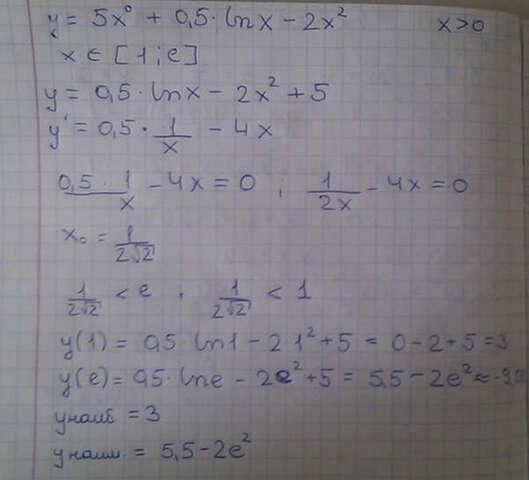 y = 5x⁰ + 0,5·lnx − 2x² x>0
x ∈ [1; e]
y = 0,5·lnx − 2x² + 5
y' = 0,5·1/x − 4x
0,5·1/x − 4x = 0 ; 1/2x − 4x = 0
x₀ = 1/2√2
1/2√2 < e , 1/2√2 < 1
y(1) = 0,5·ln1 − 2·1² + 5 = 0 − 2 + 5 = 3
y(e) = 0,5·lne − 2e² + 5 = 5,5 − 2e² ≈
yнаиб = 3
yнаим. = 5,5 − 2e²